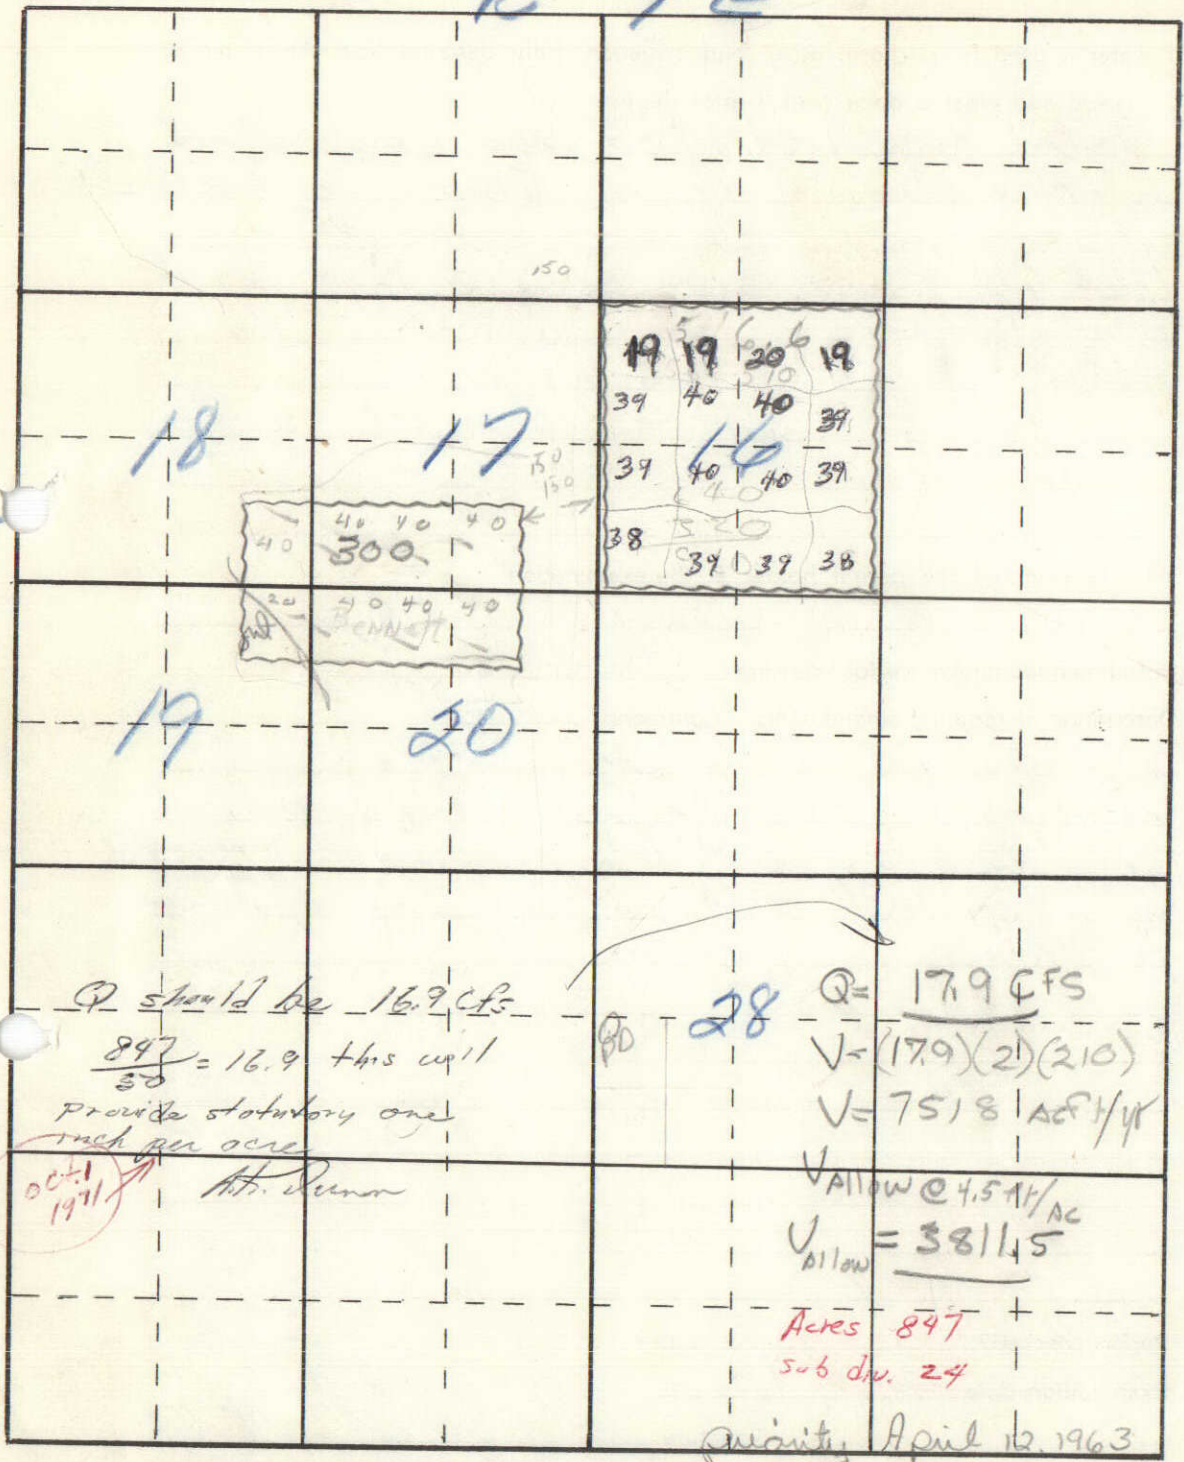 150
19 19 20 19
39 40 40 39
18 17 16
150
150
39 40 40 39
40 40 40
40 300
38 320
39 39 38
20 40 40 40
BENNett
19 20
Q should be 16.9 cfs
847/50 = 16.9 this will
provide statutory one
inch per acre
oct 1
1971
28
Q= 17.9 CFS
V=(17.9)(2)(210)
V= 7518 Acft/yr
V Allow @ 4.5 ft/AC
V Allow = 3811.5
Acres 847
sub div. 24
priority April 12, 1963